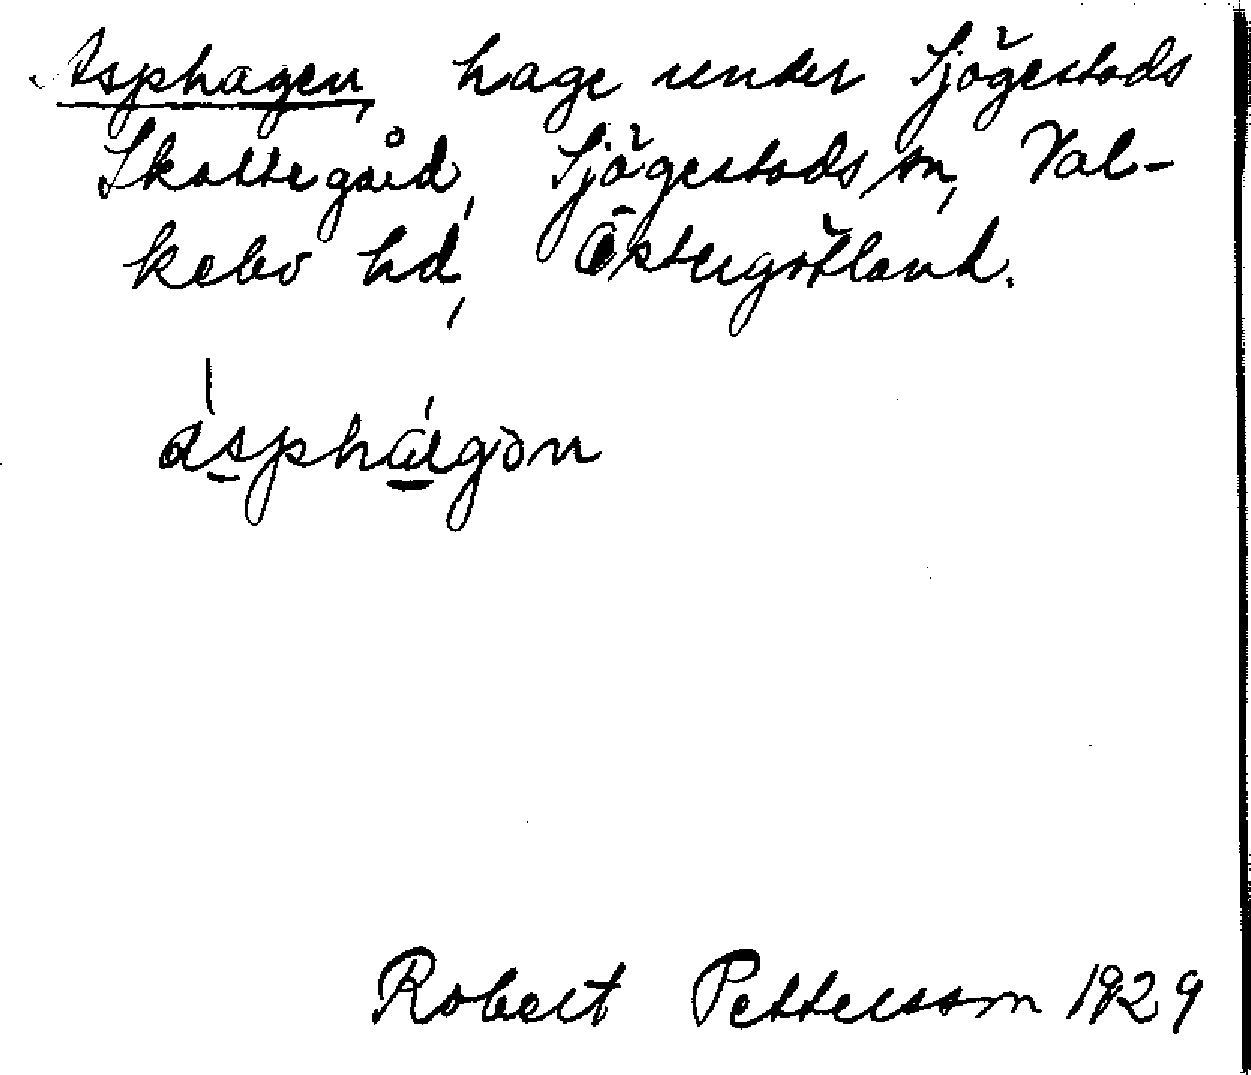 Asphagen, hage under Sjögestads
Skattegård, Sjögestads sn, Val-
kebo hd, Östergötland.
ásphágən
Robert Pettersson 1929